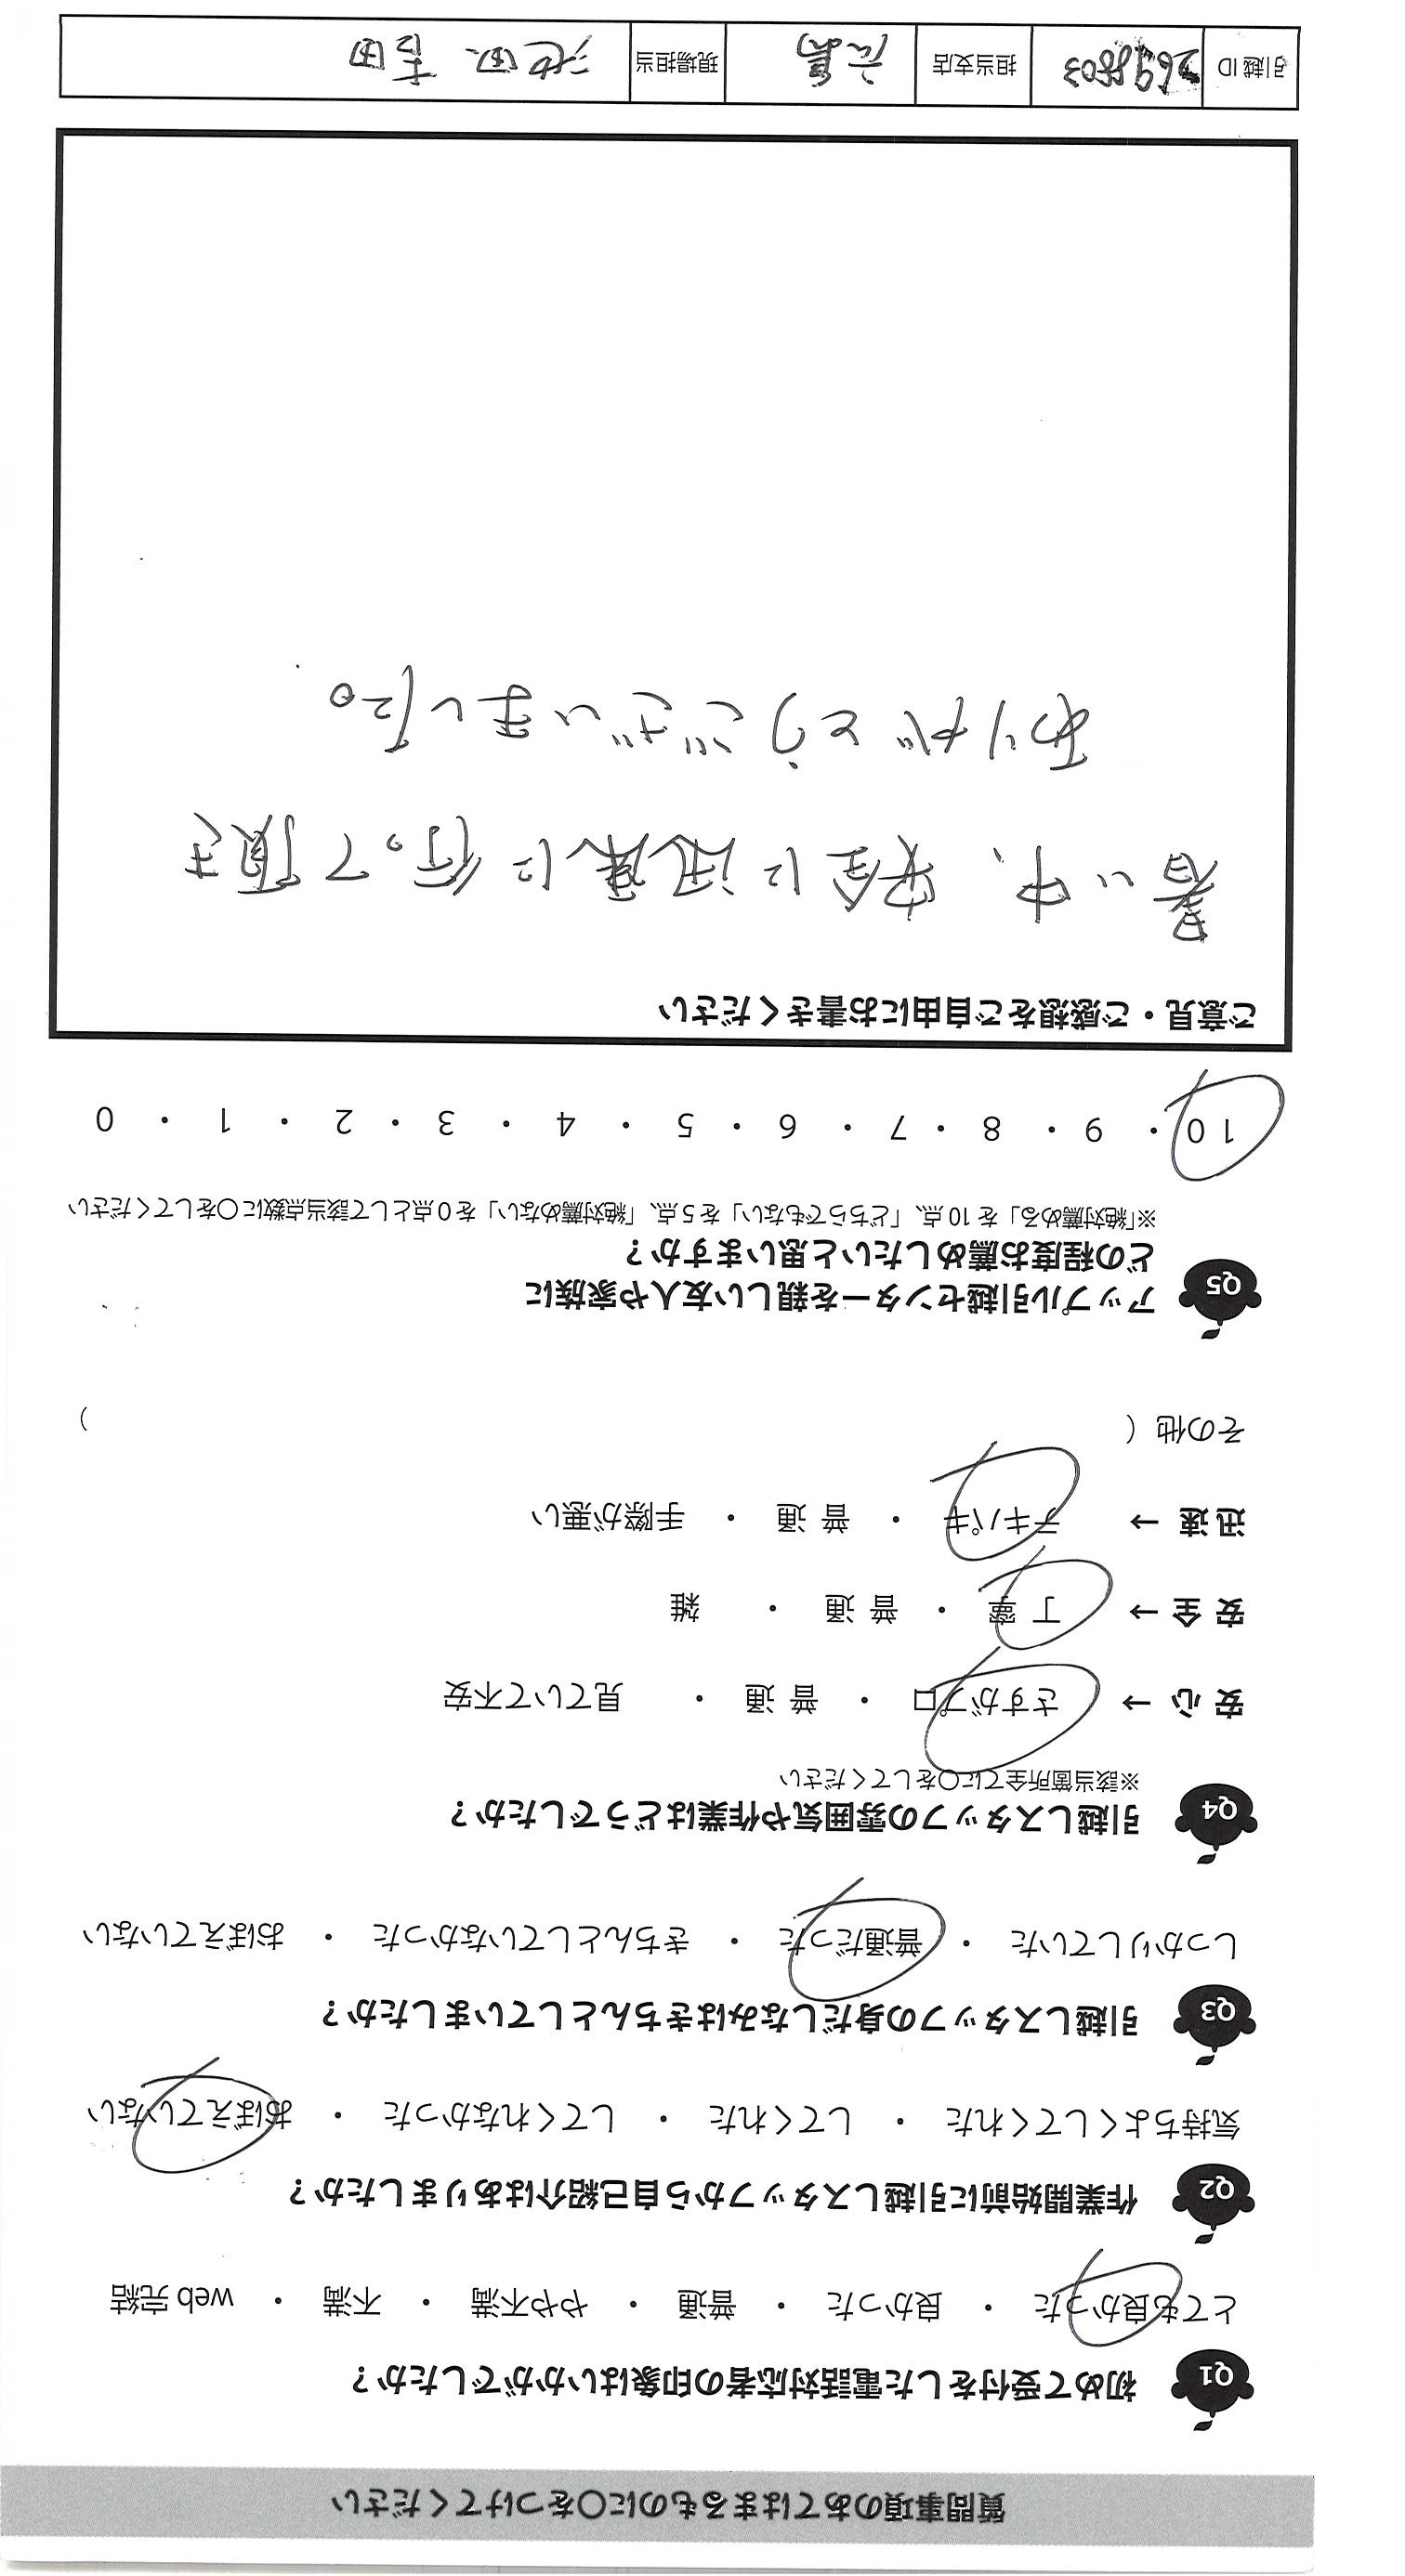 質問事項のあてはまるものに〇をつけてください
Q1 初めて受付をした電話対応者の印象はいかがでしたか？
とても良かった ・ 良かった ・ 普通 ・ やや不満 ・ 不満 ・ web 完結
Q2 作業開始前に引越しスタッフから自己紹介はありましたか？
気持ちよくしてくれた ・ してくれた ・ してくれなかった ・ おぼえていない
Q3 引越しスタッフの身だしなみはきちんとしていましたか？
しっかりしていた ・ 普通だった ・ きちんとしていなかった ・ おぼえていない
Q4 引越しスタッフの雰囲気や作業はどうでしたか？
※該当箇所全てに〇をしてください
安 心 → さすがプロ ・ 普 通 ・ 見ていて不安
安 全 → 丁 寧 ・ 普 通 ・ 雑
迅 速 → テキパキ ・ 普 通 ・ 手際が悪い
その他（ ）
Q5 アップル引越センターを親しい友人や家族に
どの程度お薦めしたいと思いますか？
※「絶対薦める」を 10 点、「どちらでもない」を 5 点、「絶対薦めない」を 0 点として該当点数に〇をしてください
10 ・ 9 ・ 8 ・ 7 ・ 6 ・ 5 ・ 4 ・ 3 ・ 2 ・ 1 ・ 0
ご意見・ご感想をご自由にお書きください
暑い中、安全に迅速に行って頂き
ありがとうございました。
引越 ID 2698803 担当支店 広島 現場担当 池田、吉田